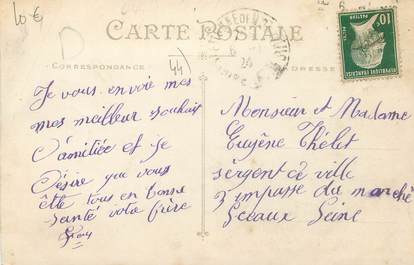 10€
CARTE POSTALE
D
CORRESPONDANCE
44
ADRESSE
10
POSTES
REPUBLIQUE FRANÇAISE
Je vous envoie mes
mes meilleur souhait
D'amitiée et je
Désire que vous
ête tous en bonne
santé votre frère
Monsieur et Madame
Eugène Thélot
sergent de ville
3 impasse du marché
Sceaux Seine